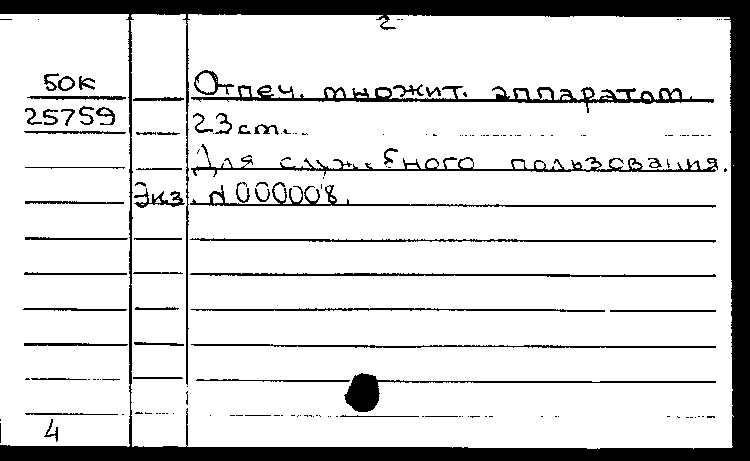 2
50к Отпеч. множит. аппаратом.
25759 23 см.
Для служебного пользования.
Экз. N 000008.
4